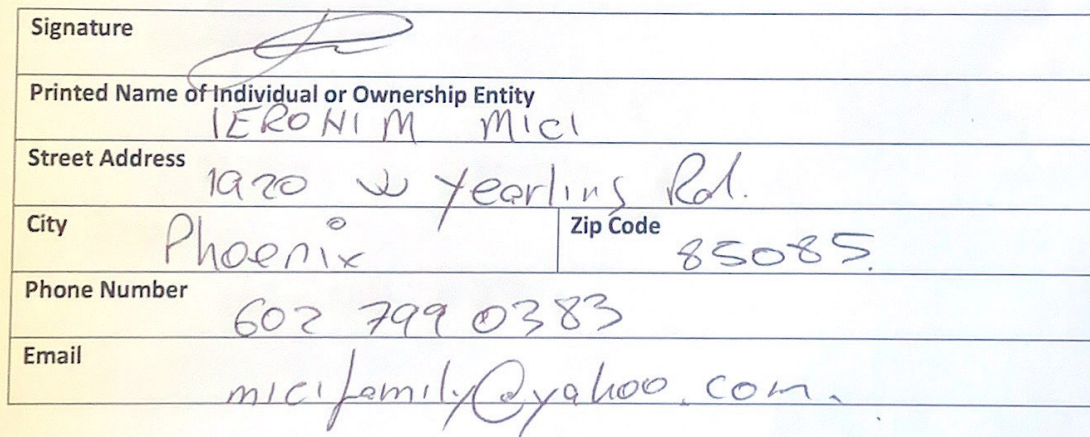 Signature
Printed Name of Individual or Ownership Entity
IERONIM MICI
Street Address
1920 W Yearling Rd.
City
Phoenix
Zip Code
85085.
Phone Number
602 799 0383
Email
micifamily@yahoo.com.